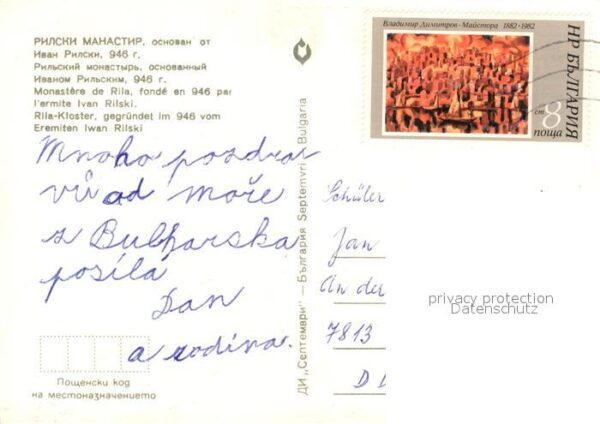 РИЛСКИ МАНАСТИР, основан от
Иван Рилски, 946 г.
Рильский монастырь, основанный
Иваном Рильским, 946 г.
Monastère de Rila, fondé en 946 par
l'ermite Ivan Rilski.
Rila-Kloster, gegründet im 946 vom
Eremiten Iwan Rilski
Mnoho pozdra
vů od moře
z Bulharska
posílá
Dan
a rodina.
Пощенски код
на местоназначението
ДИ „Септември" — България Septemvri Bulgaria
Владимир Димитров-Майстора 1882·1982
НР БЪЛГАРИЯ
ст 8
поща
Schüler
Jan
An der
7813
D D
privacy protection
Datenschutz